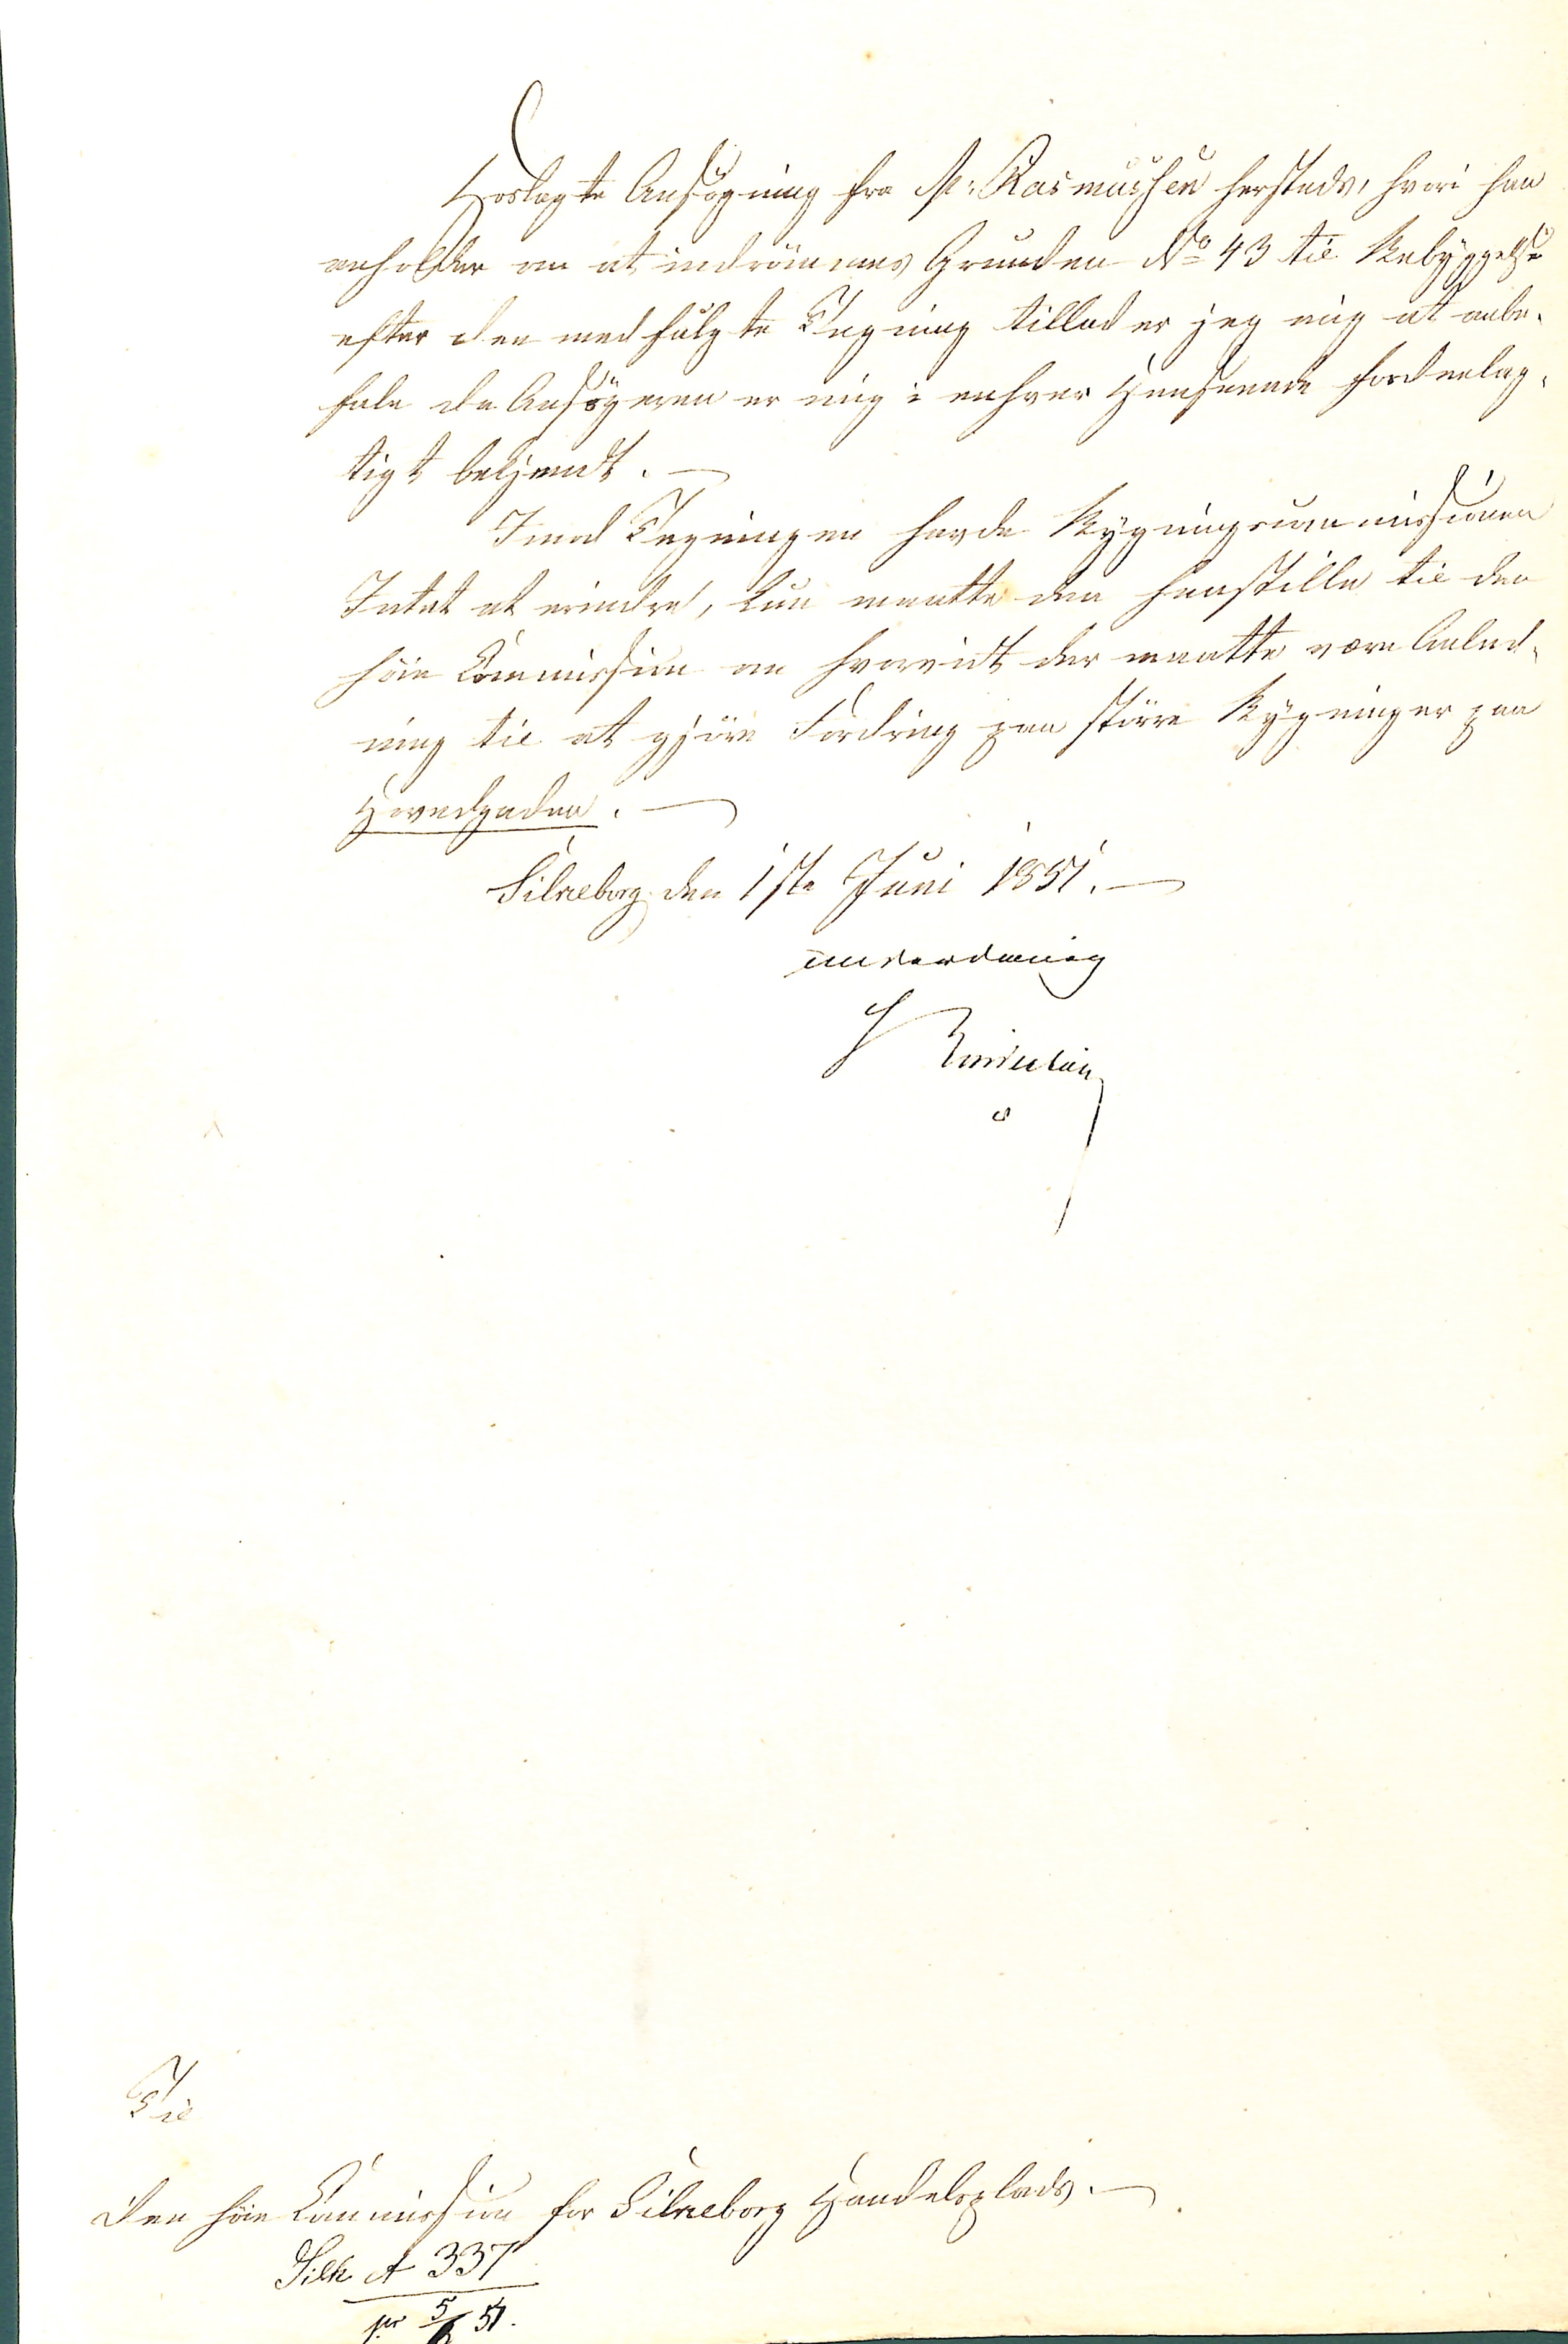 Hoslagte Ansögning fra M: Rasmussen hersteds, hvori han
anholder om at indrömmes Grunden No 43 til Bebyggelse
efter den medfulgte Tegning tillader jeg mig at anbe-
fale da Ansögeren er mig i enhver Henseende fordeelag-
tigt bekjendt. —
Imod Tegningen havde Bygningscommissionen
Intet at erindre, kun maatte den henstille til den
höie Commission om hvorvidt der maatte være Anled-
ning til at gjöre Fordring paa större Bygninger paa
Hovedgaden. —
Silkeborg den 1ste Juni 1851. —
underdanig
Til
den höie Commission for Silkeborg Handelsplads. —
Silk A 337
pr 5/6 51.